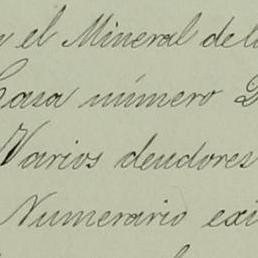 el Mineral de
Casa número
Varios deudores
Numerario exi